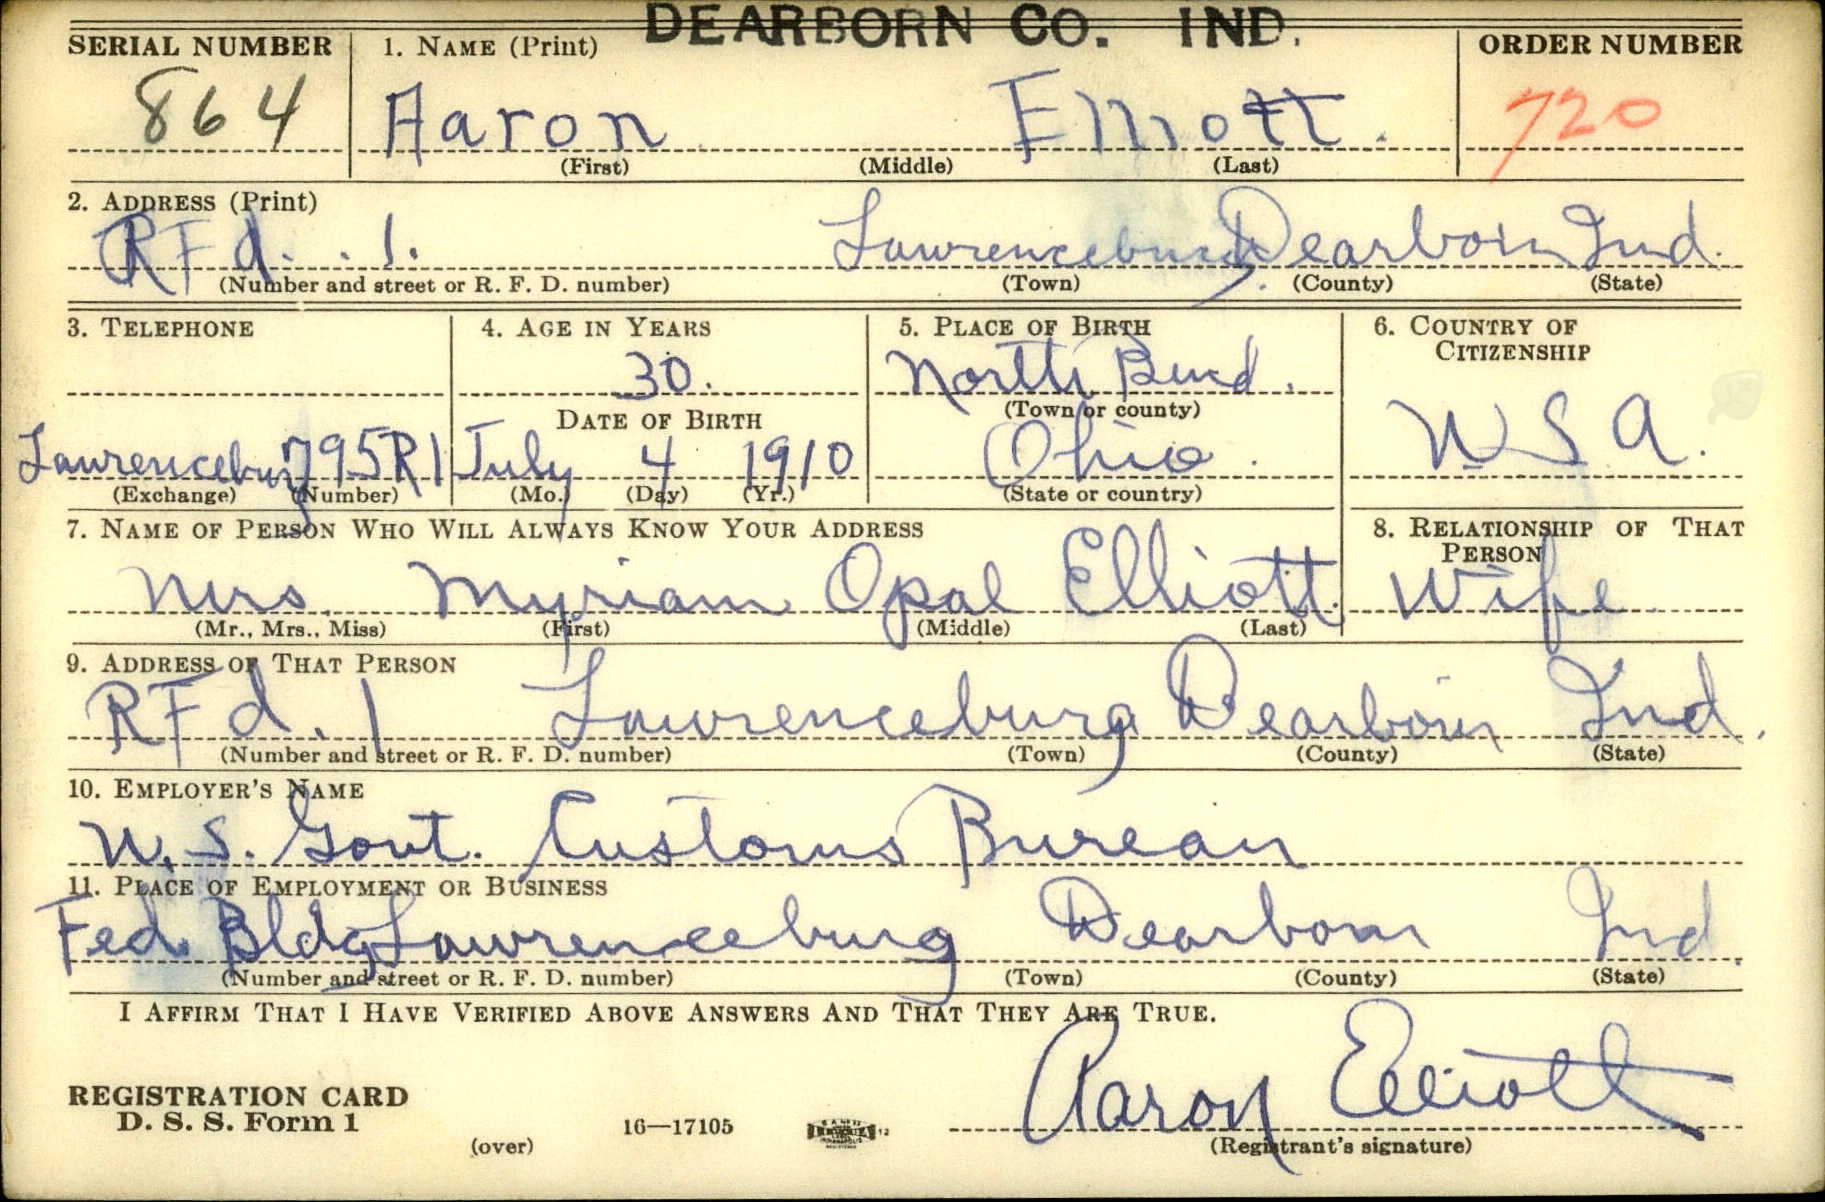 DEARBORN CO. IND.
SERIAL NUMBER 1. NAME (Print) ORDER NUMBER
864 Aaron Elliott. 720
(First) (Middle) (Last)
2. ADDRESS (Print)
RFd. . 1. Lawrenceburg Dearborn Ind.
(Number and street or R. F. D. number) (Town) (County) (State)
3. TELEPHONE 4. AGE IN YEARS 5. PLACE OF BIRTH 6. COUNTRY OF CITIZENSHIP
30. North Bend.
DATE OF BIRTH (Town or county)
Lawrenceburg 795R1 July 4 1910 Ohio. U S A.
(Exchange) (Number) (Mo.) (Day) (Yr.) (State or country)
7. NAME OF PERSON WHO WILL ALWAYS KNOW YOUR ADDRESS 8. RELATIONSHIP OF THAT PERSON
Mrs. Myriam Opal Elliott. Wife.
(Mr., Mrs., Miss) (First) (Middle) (Last)
9. ADDRESS OF THAT PERSON
RFd. 1 Lawrenceburg Dearborn Ind.
(Number and street or R. F. D. number) (Town) (County) (State)
10. EMPLOYER'S NAME
U. S. Govt. Customs Bureau
11. PLACE OF EMPLOYMENT OR BUSINESS
Fed. Bldg Lawrenceburg Dearborn Ind.
(Number and street or R. F. D. number) (Town) (County) (State)
I AFFIRM THAT I HAVE VERIFIED ABOVE ANSWERS AND THAT THEY ARE TRUE.
REGISTRATION CARD
D. S. S. Form 1 Aaron Elliott
(over) 16—17105 12 (Registrant's signature)